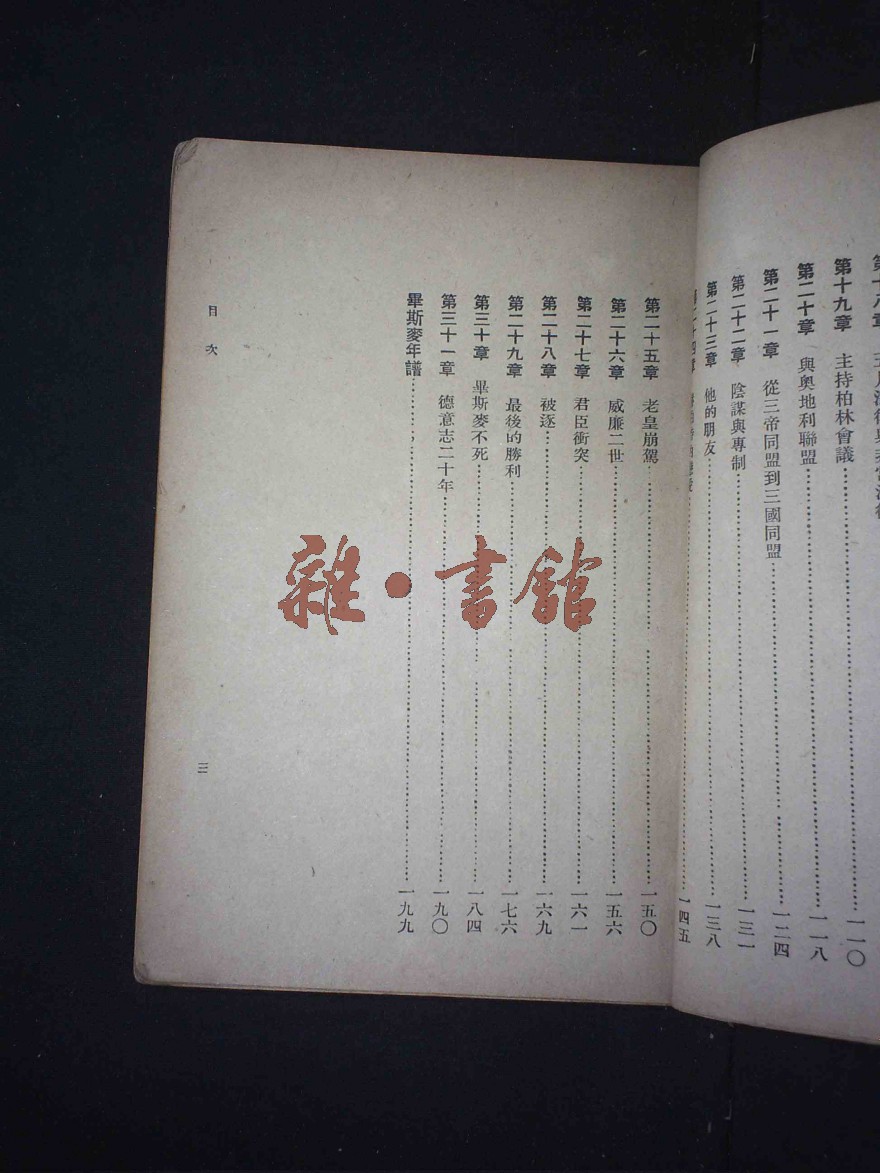 第十九章 主持柏林會議 一一〇
第二十章 與奧地利聯盟 一一八
第二十一章 從三帝同盟到三國同盟 一二四
第二十二章 陰謀與專制 一三一
第二十三章 他的朋友 一三八
第二十四章 一四五
第二十五章 老皇崩駕 一五〇
第二十六章 威廉二世 一五六
第二十七章 君臣衝突 一六一
第二十八章 被逐 一六九
第二十九章 最後的勝利 一七六
第三十章 畢斯麥不死 一八四
第三十一章 德意志二十年 一九〇
畢斯麥年譜 一九九
目次
三
雜·書館